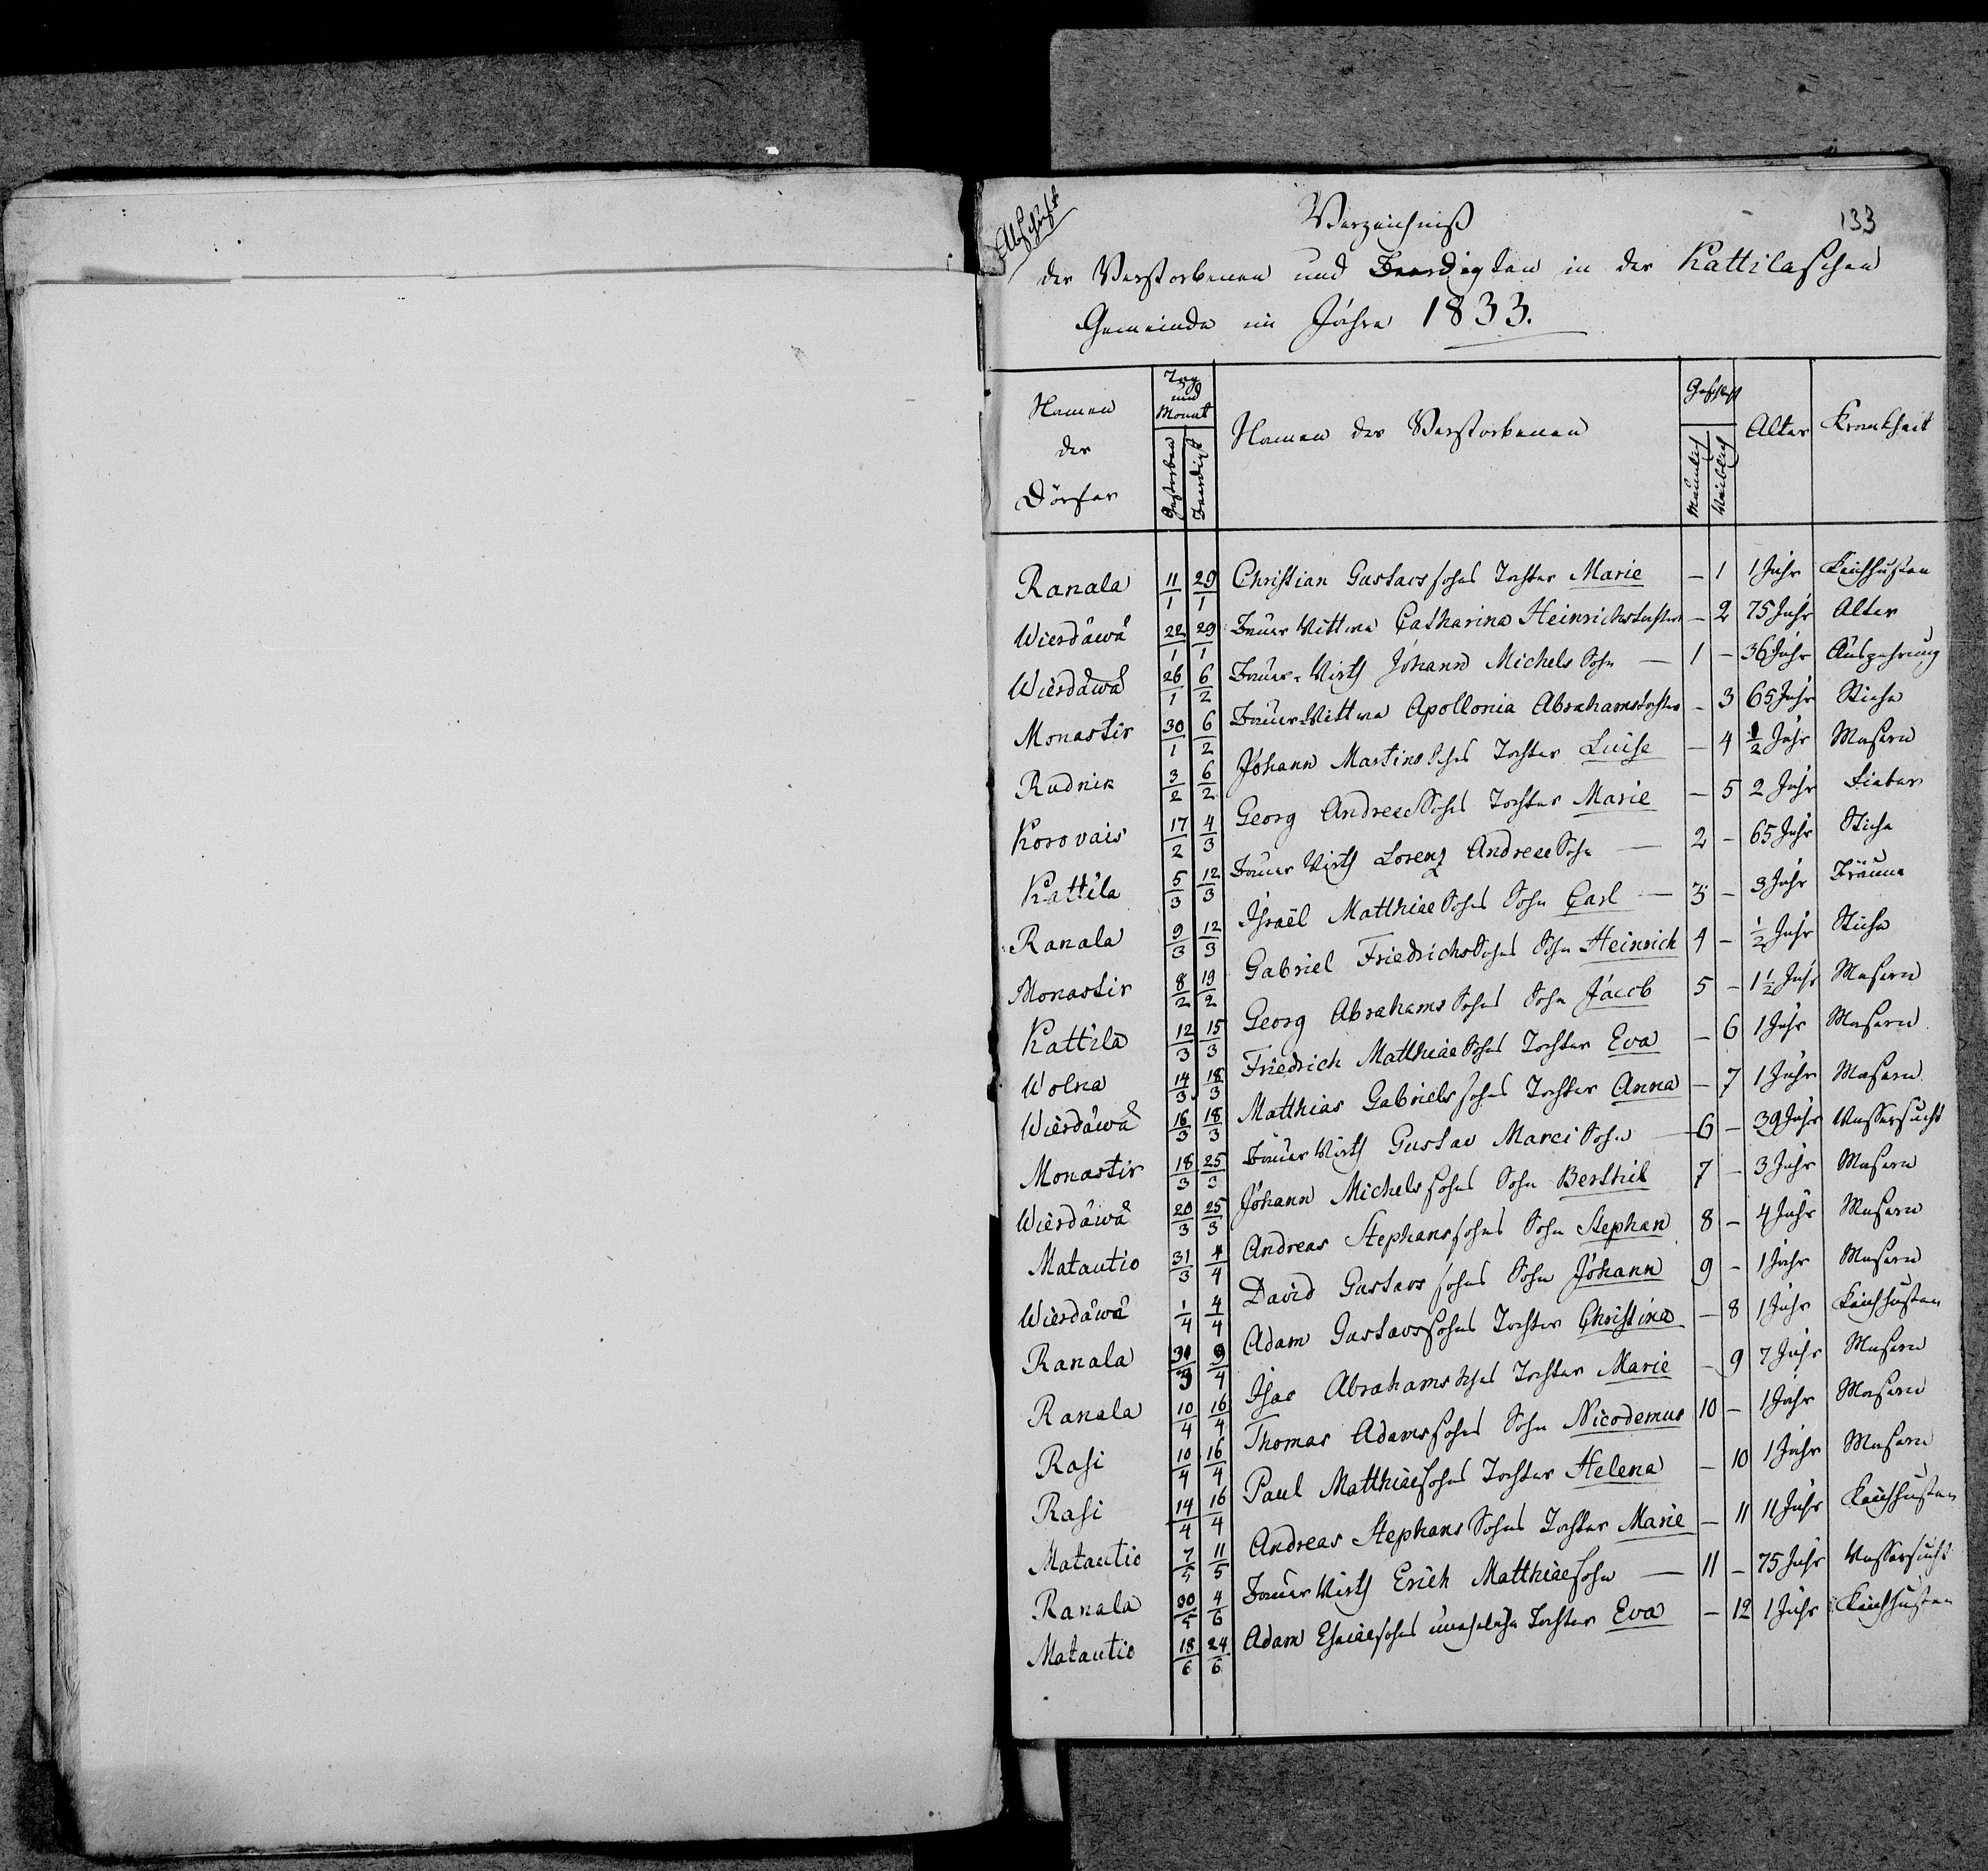 Abschrift
133
Verzeichniß
der Verstorbenen und Beerdigten in der Kattilaschen
Gemeinde im Jahre 1833.
Namen der Dörfer | Tag und Monat | Gestorben | Beerdigt | Namen der Verstorbenen | Geschlecht | Mänlich | Weiblich | Alter | Krankheit
Ranala 11/1 29/1 Christian Gustavssohns Tochter Marie – 1 1 Jahr Keichhusten
Wierdäwä 22/1 29/1 Bauer Wittwe Catharina Heinrichstochter – 2 75 Jahr Alter
Wierdäwä 26/1 6/2 Bauer-Wirth Johann Michels Sohn — 1 – 36 Jahr Auszehrung
Monastir 30/1 6/2 Bauer Wittwe Apollonia Abrahamstochter – 3 65 Jahr Stiche
Rudnik 3/2 6/2 Johann Martins Sohns Tochter Luise – 4 1/2 Jahr Masern
Korovais 17/2 4/3 Georg Andreae Sohns Tochter Marie – 5 2 Jahr Fieber
Kattila 5/3 12/3 Bauer Wirth Lorenz Andreae Sohn — 2 – 65 Jahr Stiche
Ranala 9/3 12/3 Israël Matthiae Sohns Sohn Carl — 3 – 3 Jahr Bräune
Monastir 8/2 19/2 Gabriel Friedrichs Sohns Sohn Heinrich 4 – 1/2 Jahr Stiche
Kattila 12/3 15/3 Georg Abrahams Sohns Sohn Jacob 5 – 1 1/2 Jahr Masern
Wolna 14/3 18/3 Friedrich Matthiae Sohns Tochter Eva – 6 1 Jahr Masern
Wierdäwä 16/3 18/3 Matthias Gabriels sohns Tochter Anna – 7 1 Jahr Masern
Monastir 18/3 25/3 Bauer Wirth Gustav Marci Sohn — 6 – 39 Jahr Wassersucht
Wierdäwä 20/3 25/3 Johann Michels sohns Sohn Berthil 7 – 3 Jahr Masern
Matautio 31/3 4/4 Andreas Stephans sohns Sohn Stephan 8 – 4 Jahr Masern
Wierdäwä 1/4 4/4 David Gustavs sohns Sohn Johann 9 – 1 Jahr Masern
Ranala 9/4 Adam Gustavssohns Tochter Christina – 8 1 Jahr Keichhusten
Ranala 10/4 16/4 Isac Abrahams Sohns Tochter Marie – 9 7 Jahr Masern
Rasi 10/4 16/4 Thomas Adams sohns Sohn Nicodemus 10 – 1 Jahr Masern
Rasi 14/4 16/4 Paul Matthiaesohns Tochter Helena – 10 1 Jahr Masern
Matautio 7/5 11/5 Andreas Stephans Sohns Tochter Marie – 11 11 Jahr Keichhusten
Ranala 30/5 4/6 Bauer Wirth Erich Matthiaesohn — 11 – 75 Jahr Wassersucht
Matautio 18/6 24/6 Adam Esaiaesohns uneheliche Tochter Eva – 12 1 Jahr Keichhusten